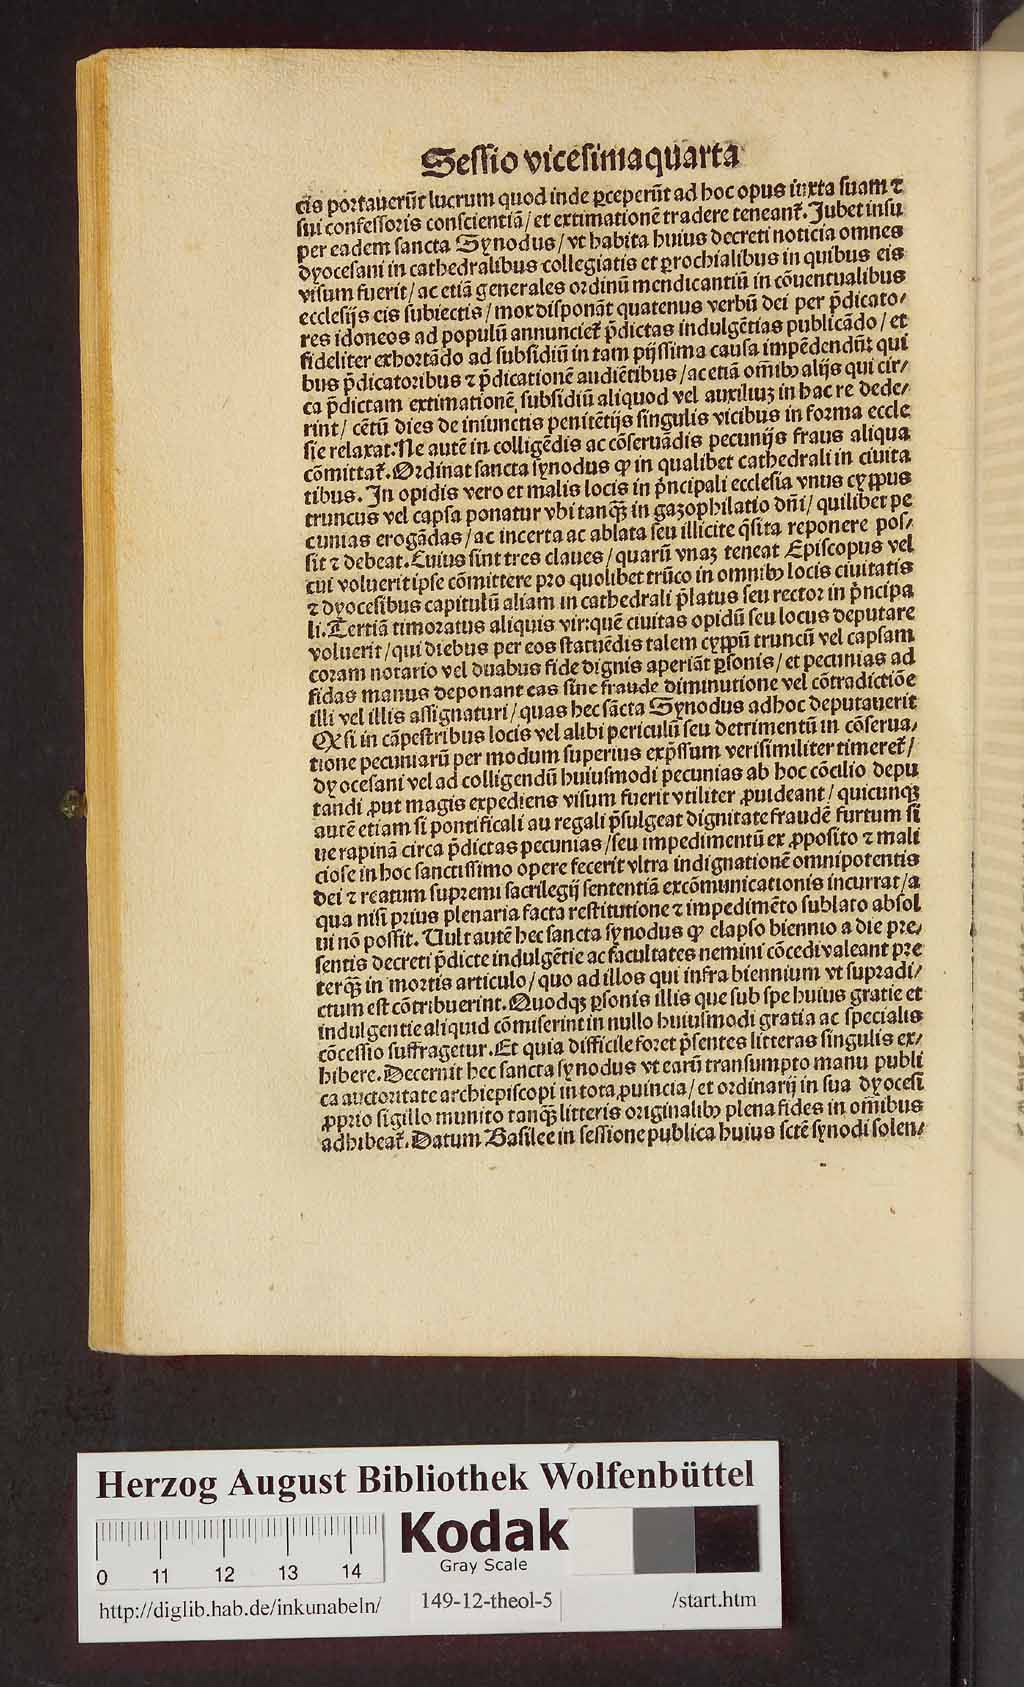 Sessio vicesimaquarta
cis portauerūt lucrum quod inde ꝑceperūt ad hoc opus iuxta suam ⁊
sui confessoris conscientiā / et extimationē tradere teneant᷑. Jubet insu
per eadem sancta Synodus / vt habita huius decreti noticia omnes
dyocesani in cathedralibus collegiatis et ꝑrochialibus in quibus eis
visum fuerit / ac etiā generales ordinū mendicantiū in cōuentualibus
ecclesijs eis subiectis / mox disponāt quatenus verbū dei per p̄dicato⸗
res idoneos ad populū annunciet᷑ p̄dictas indulgētias publicādo / et
fideliter exhortādo ad subsidiū in tam pijssima causa impēdendūꝫ qui
bus p̄dicatoribus ⁊ p̄dicationē audiētibus / ac etiā om̄ibꝫ alijs qui cir⸗
ca p̄dictam extimationē subsidiū aliquod vel auxiliuꝫ in hac re dede⸗
rint / cētū dies de iniunctis penitētijs singulis vicibus in forma eccle
sie relaxat. Ne autē in colligēdis ac cōseruādis pecunijs fraus aliqua
cōmittat᷑. Ordinat sancta synodus ꝙ in qualibet cathedrali in ciuita
tibus. In opidis vero et malis locis in p̄ncipali ecclesia vnus cyppus
truncus vel capsa ponatur vbi tanqꝫ in gazophilatio dn̄i / quilibet pe
cunias erogādas / ac incerta ac ablata seu illicite q̄sita reponere pos⸗
sit ⁊ debeat. Cuius sint tres claues / quarū vnaꝫ teneat Episcopus vel
cui voluerit ipse cōmittere pro quolibet trūco in omnibꝫ locis ciuitatis
⁊ dyocesibus capitulū aliam in cathedrali p̄latus seu rector in p̄ncipa
li. Tertiā timoratus aliquis vir: quē ciuitas opidū seu locus deputare
voluerit / qui diebus per eos statuēdis talem cyppū truncū vel capsam
coram notario vel duabus fide dignis aperiāt ꝑsonis / et pecunias ad
fidas manus deponant eas sine fraude diminutione vel cōtradictiōe
illi vel illis assignaturi / quas hec sācta Synodus adhoc deputauerit
Qꝫ si in cāpestribus locis vel alibi periculū seu detrimentū in cōserua⸗
tione pecuniarū per modum superius exp̄ssum verisimiliter timeret᷑ /
dyocesani vel ad colligendū huiusmodi pecunias ab hoc cōcilio depu
tandi ꝓut magis expediens visum fuerit vtiliter ꝓuideant / quicunqꝫ
autē etiam si pontificali au regali p̄fulgeat dignitate fraudē furtum si
ue rapinā circa p̄dictas pecunias / seu impedimentū ex ꝓposito ⁊ mali
ciose in hoc sanctissimo opere fecerit vltra indignationē omnipotentis
dei ⁊ reatum supremi sacrilegij sententiā excōmunicationis incurrat / a
qua nisi prius plenaria facta restitutione ⁊ impedimēto sublato absol
ui nō possit. Uult autē hec sancta synodus ꝙ elapso biennio a die pre⸗
sentis decreti p̄dicte indulgētie ac facultates nemini cōcedi valeant pre
terqꝫ in mortis articulo / quo ad illos qui infra biennium vt supradi⸗
ctum est cōtribuerint. Quodqꝫ ꝑsonis illis que sub spe huius gratie et
indulgentie aliquid cōmiserint in nullo huiusmodi gratia ac specialis
cōcessio suffragetur. Et quia difficile foret p̄sentes litteras singulis ex⸗
hibere. Decernit hec sancta synodus vt earū transumpto manu publi
ca auctoritate archiepiscopi in tota ꝓuincia / et ordinarij in sua dyocesi
ꝓprio sigillo munito tanqꝫ litteris originalibꝫ plena fides in om̄ibus
adhibeat᷑. Datum Basilee in sessione publica huius sctē synodi solen⸗
Herzog August Bibliothek Wolfenbüttel
Kodak
Gray Scale
0 11 12 13 14
http://diglib.hab.de/inkunabeln/ 149-12-theol-5 /start.htm